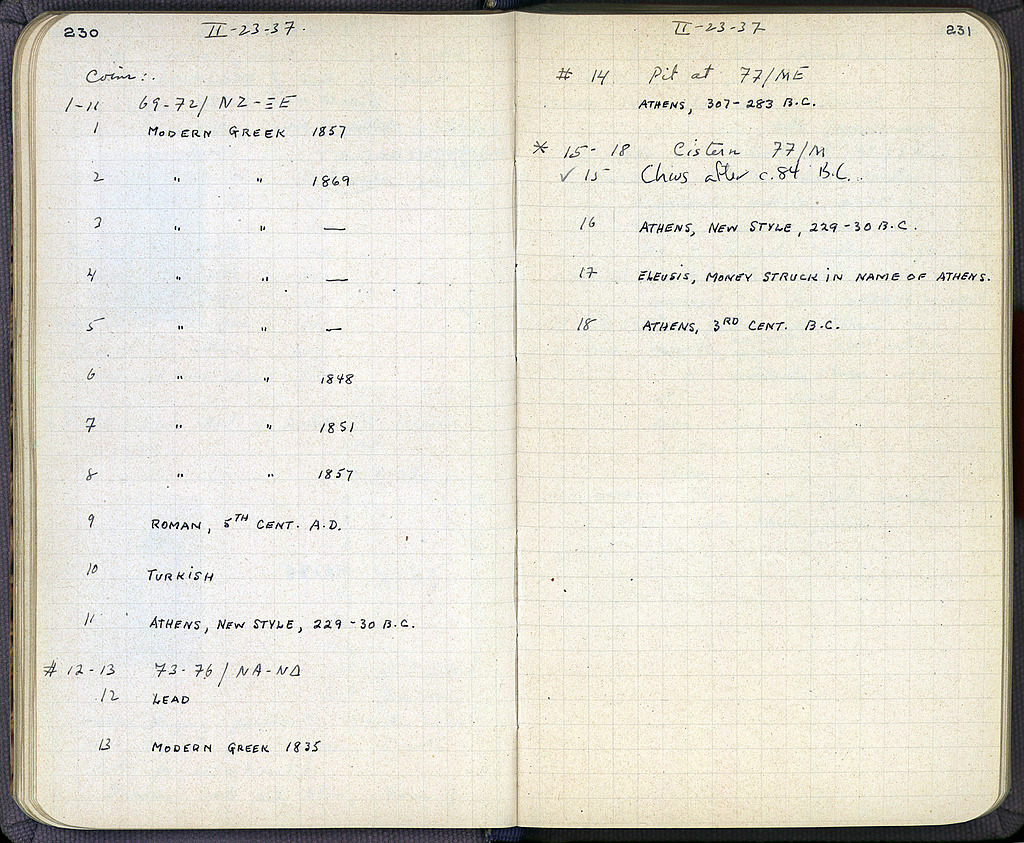 230
II-23-37.
Coins:.
1-11 69-72/ NZ-ΞE
1 MODERN GREEK 1857
2 " " 1869
3 " " —
4 " " —
5 " " —
6 " " 1848
7 " " 1851
8 " " 1857
9 ROMAN, 5TH CENT. A.D.
10 TURKISH
11 ATHENS, NEW STYLE, 229-30 B.C.
# 12-13 73-76/ NA-NΔ
12 LEAD
13 MODERN GREEK 1835
II-23-37
231
# 14 Pit at 77/ME
ATHENS, 307-283 B.C.
* 15-18 Cistern 77/M
✓ 15 Chios after c.84 B.C.
16 ATHENS, NEW STYLE, 229-30 B.C.
17 ELEUSIS, MONEY STRUCK IN NAME OF ATHENS.
18 ATHENS, 3RD CENT. B.C.